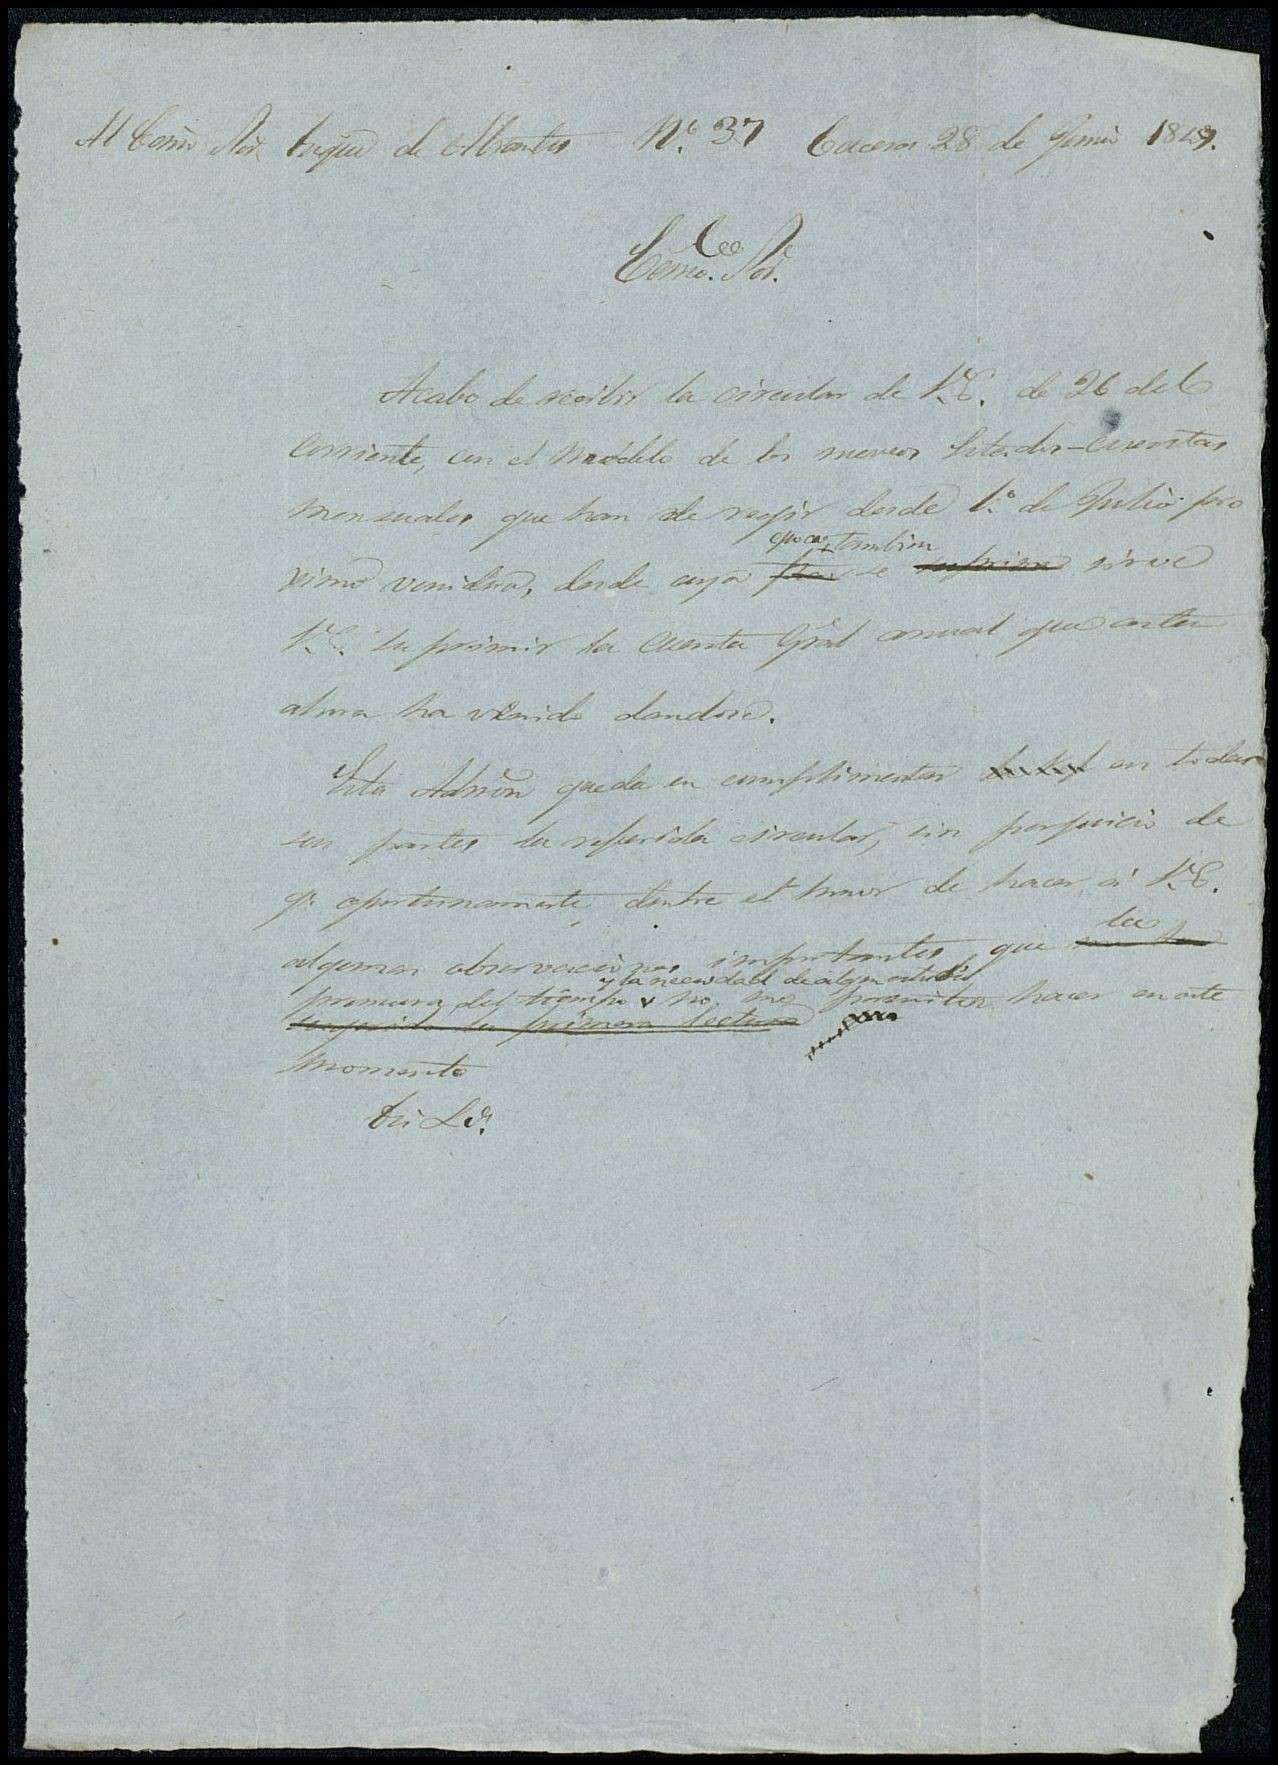 Al Exmo Sor Duque de Abrantes Nº. 37 Caceres 28 de Junio 1849.
Exmo. Sor.
Acabo de recibir la circular de V.E. de 26 del
corriente, con el modelo de los nuevos Estados-cuentas
mensuales que han de regir desde 1º. de Julio pro
epoca tambien
ximo venidero, desde cuya se sirve
V.E. suprimir la cuenta Gral anual que asta
ahora ha venido dandose.
Esta Admon queda en cumplimentar en todas
sus partes la referida circular, sin perjuicio de
qe. oportunamente, dentre el honor de hacer á V.E.
algunas observaciones importantes que la
y la necesidad de algun estudio
premura del tiempo no me permiten hacer en este
la primera lectura
momento
Dios &a.